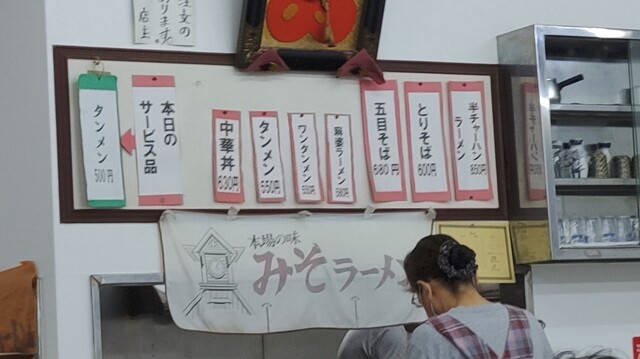 注文の
ります。
店主
タンメン
500円
本日の
サービス品
中華丼
630円
タンメン
550円
ワンタンメン
麻婆ラーメン
580円
五目そば
680円
とりそば
600円
半チャーハン
ラーメン
850円
本場の味
みそラーメン
半チャーハン